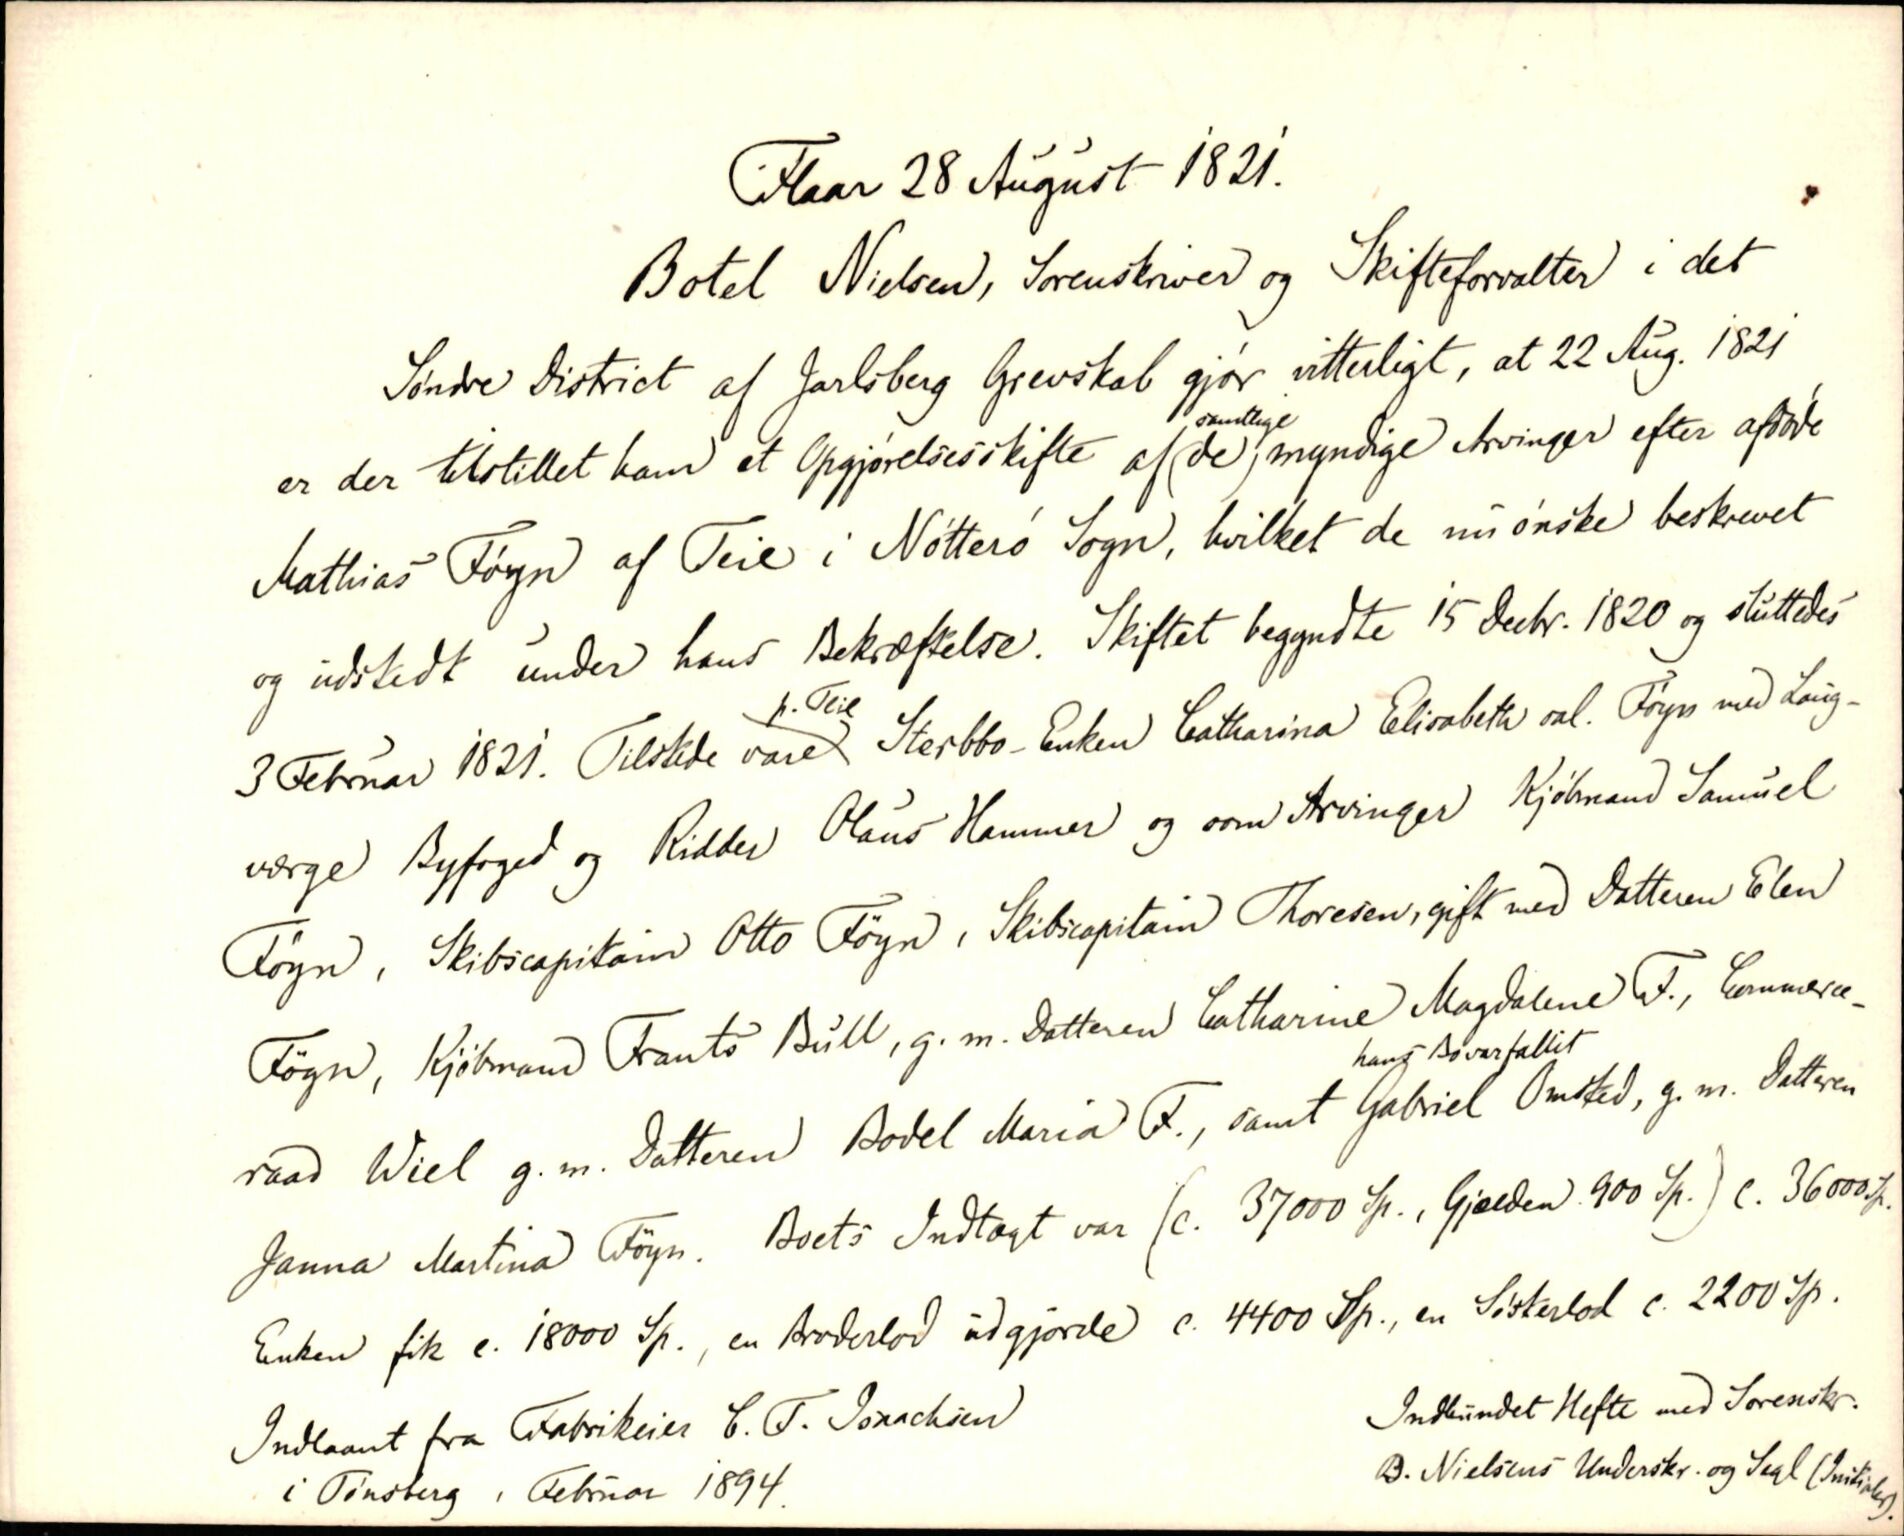 Flaar 28 August 1821.
Botel Nielsen, Sorenskriver og Skifteforvalter i det
Söndre District af Jarlsberg Grevskab gjör vitterligt, at 22 Aug. 1821
er der tilstillet ham et Opgjörelsesskifte af (de) samtlige myndige Arvinger efter afdöde
Mathias Föyn af Teie i Nötterö Sogn, hvilket de nu önske beskrevet
og udstedt under hans Bekræftelse. Skiftet begyndte 15 Decbr. 1820 og sluttedes
3 Februar 1821. Tilstede vare p. Teie Sterbbo-Enken Catharina Elisabeth sal. Föyn med Laug-
værge Byfoged og Ridder Olaus Hammer og som Arvinger Kjöbmand Samuel
Föyn, Skibscapitain Otto Föyn, Skibscapitain Thoresen, gift med Datteren Elen
Föyn, Kjöbmand Frants Bull, g. m. Datteren Catharine Magdalene F., Commerce-
raad Wiel g. m. Datteren Bodel Maria F., samt hans Bo var fallit Gabriel Omsted, g. m. Datteren
Janna Martina Föyn. Boets Indtægt var (c. 37000 Sp., Gjælden 900 Sp.) c. 36000 Sp.
Enken fik c. 18000 Sp., en Broderlod udgjorde c. 4400 Sp., en Sösterlod c. 2200 Sp.
Indlaant fra Fabrikeier C. F. Isaachsen
i Tönsberg, Februar 1894.
Indbundet Hefte med Sorenskr.
B. Nielsens Underskr. og Segl (Initialer).